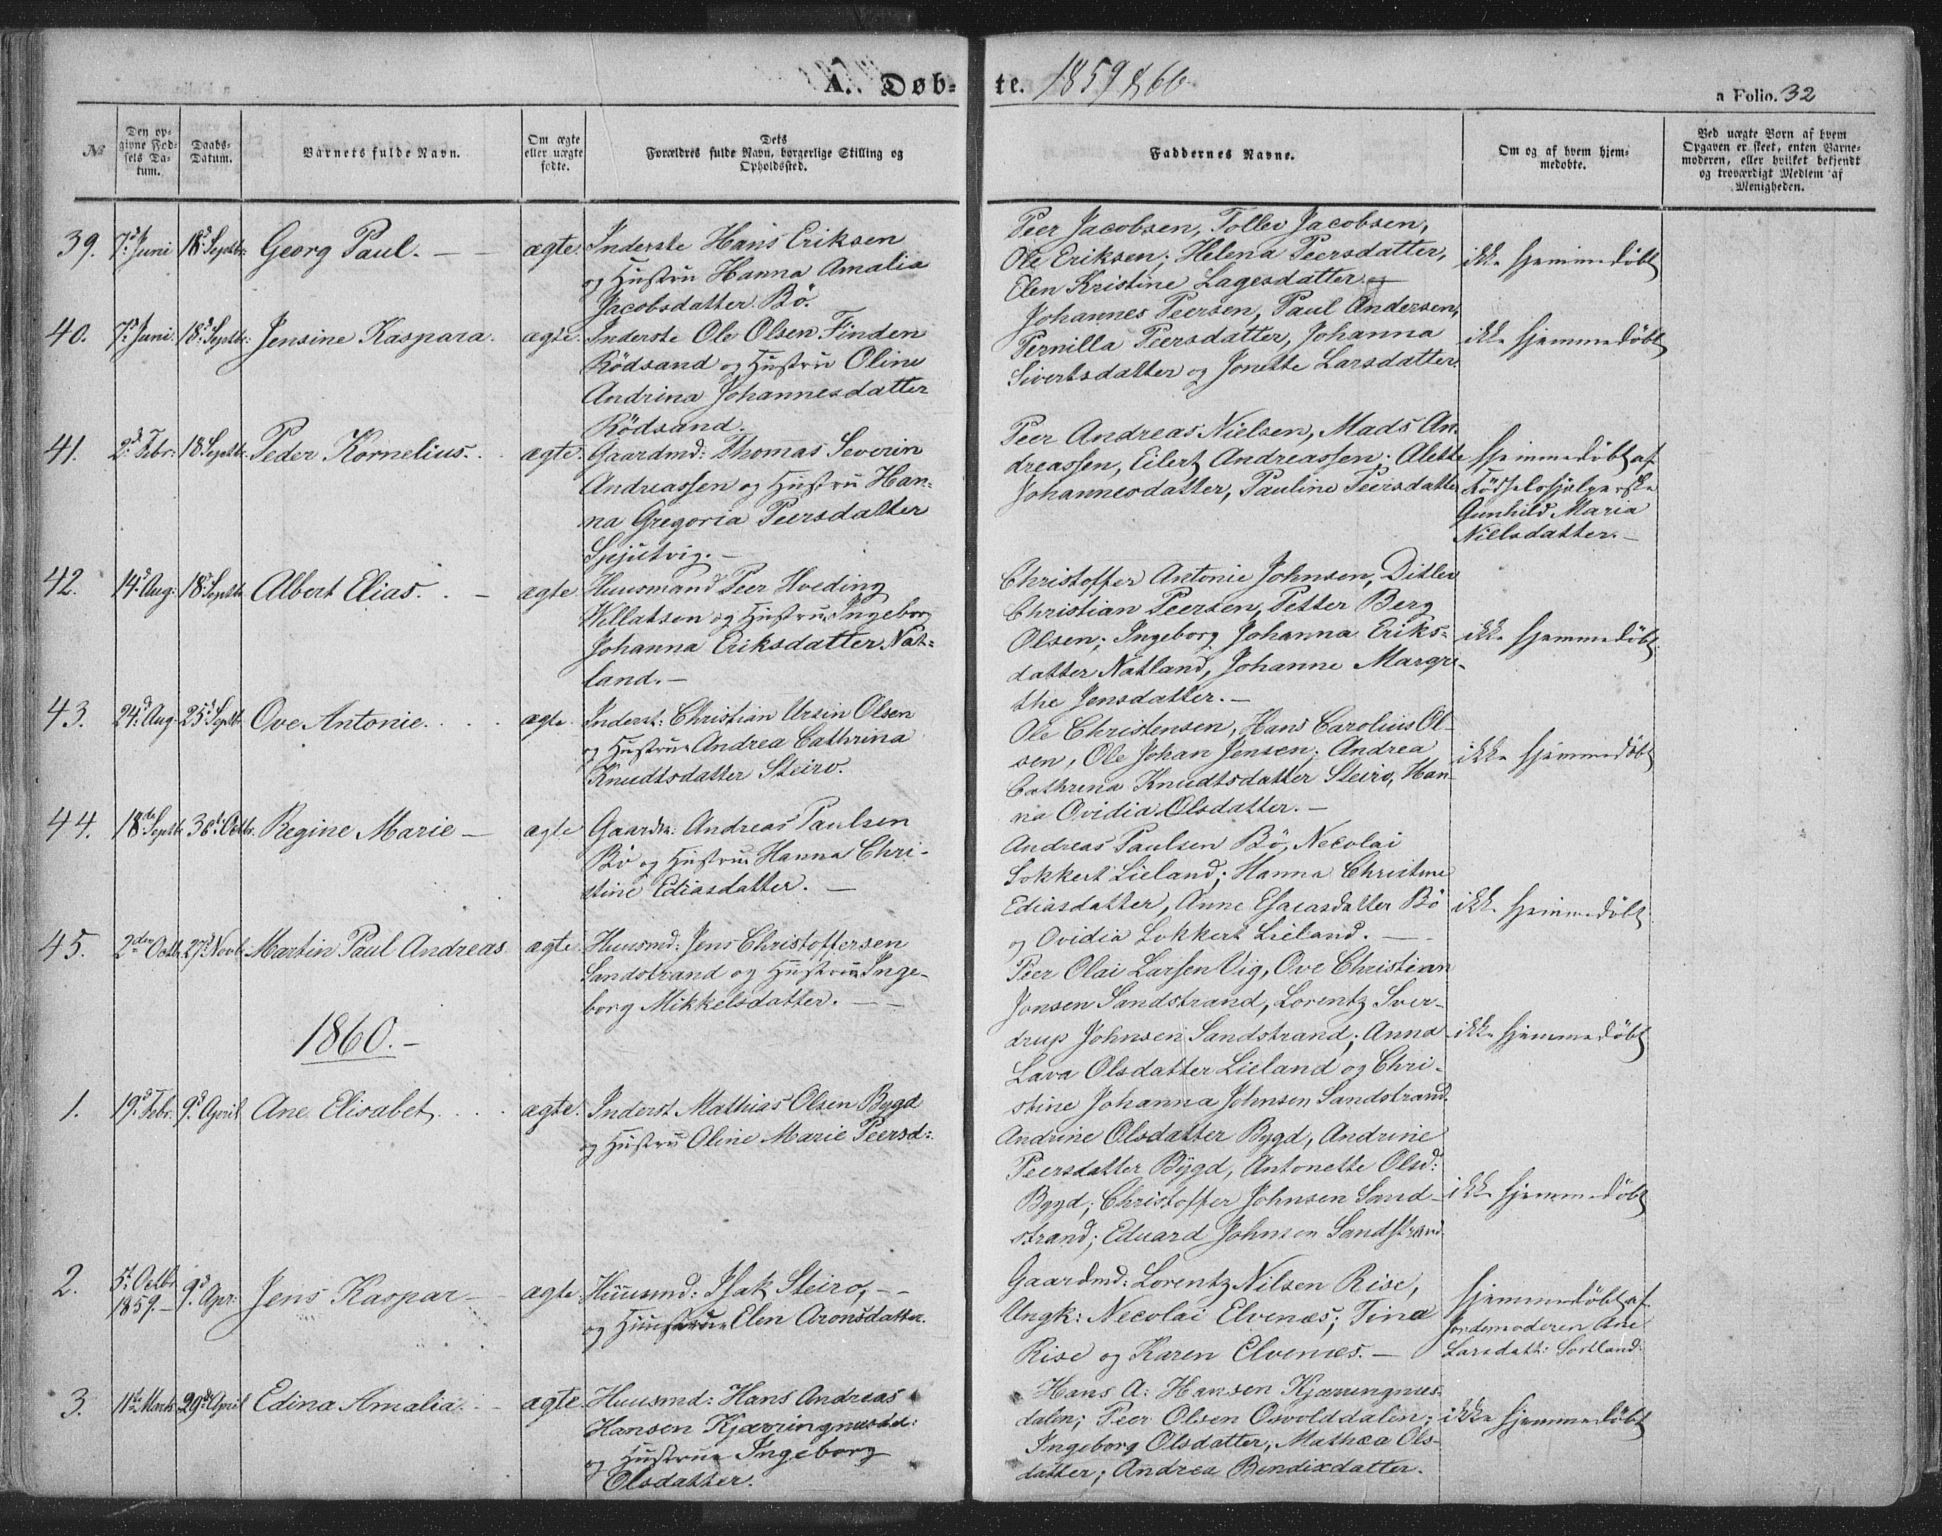 A. Døb-
te. 1859 & 60.
a Folio. 32
No
Den op-
givne Fød-
sels Da-
tum.
Daabs-
Datum.
Barnets fulde Navn.
Om ægte
eller uægte
fødte.
Dets
Forældres fulde Navn, borgerlige Stilling og
Opholdssted.
Faddernes Navne.
Om og af hvem hjem-
medøbte.
Ved uægte Børn af hvem
Opgaven er skeet, enten Barne-
moderen, eller hvilket bekjendt
og troværdigt Medlem af
Menigheden.
39. 7d Juni 18d Septbr: Georg Paul. — — ægte.
Inderste Hans Eriksen
og Hustru Hanna Amalia
Jacobsdatter Bö.
Peer Jacobsen, Tollev Jacobsen,
Ole Eriksen; Helena Peersdatter,
Elen Kristine Lagesdatter og
ikke hjemmedøbt
40. 7d Juni 18d Septbr: Jensine Kaspara. ægte.
Inderste Ole Olsen Finden
Rödsand og Hustru Oline
Andrina Johannesdatter
Rödsand.
Johannes Peersen, Paul Andersen,
Pernilla Peersdatter, Johanna
Sivertsdatter og Jonette Larsdatter.
ikke hjemmedøbt
41. 2d Febr: 18 Septbr: Peder Kornelius. ægte.
Gaardmd: Thomas Severin
Andreassen og Hustru Han-
na Gregoria Peersdatter
Spjutvig. —
Peer Andreas Nielsen, Mads An-
dreassen, Eilert Andreassen. Alette
Johannesdatter, Pauline Peersdatter
hjemmedøbt af
Födselshjelperske
Gunhild Maria
Nielsdatter. —
42. 14d Aug: 18d Septbr Albert Elias. — ægte
Huusmand Peer Hveding
Wellatsen og Hustru Ingeborg
Johanna Eriksdatter Nat-
land. —
Christoffer Antonie Johnsen, Ditlev
Christian Peersen, Petter Berg
Olsen; Ingeborg Johanna Eriks-
datter Natland, Johanne Margre-
the Jensdatter. —
ikke hjemmedøbt.
43. 24d Aug: 25d Septbr. Ove Antonie. ægte.
Inderst: Christian Ursin Olsen
og Hustru Andrea Cathrina
Knudtsdatter Steiro.
Ole Christensen, Hans Carolius Ol-
sen, Ole Johan Jensen; Andrea
Cathrina Knudtsdatter Steiro, Han-
na Ovidia Olsdatter. —
ikke hjemmedøbt
44. 18de Septbr 30te Octbr. Regine Marie — ægte
Gaardm: Andreas Paulsen
Bö og Hustru Hanna Chri-
stine Ediasdatter. —
Andreas Paulsen Bö, Necolai
Lokkert Lieland; Hanna Christine
Ediasdatter, Anne Esaiasdatter Bö
og Ovidia Lokkert Lieland. —
ikke hjemmedøbt
45. 2den Octb. 27d Novb. Martin Paul Andreas. ægte.
Huusmd: Jens Christoffersen
Sandstrand og Hustru Inge-
borg Mikkelsdatter. — —
Peer Olai Larsen Vig, Ove Christian
Jonsen Sandstrand, Lorentz Sver-
drup Johnsen Sandstrand; Anna
Lava Olsdatter Lieland og Chri-
stine Johanna Johnsen Sandstrand.
ikke hjemmedøbt
1860. —
1. 19d Febr. 9d April Ane Elisabet. ægte.
Inderst Mathias Olsen Bygd
og Hustru Oline Marie Peersd:
Andrine Olsdatter Bygd, Andrine
Peersdatter Bygd, Antonette Olsd:
Bygd; Christoffer Johnsen Sand-
strand; Eduard Johnsen Sandstrand
ikke hjemmedøbt
2. 5t Octbr
1859. — 9d Apr: Jens Kaspar — ægte
Huusmd: Isak Steiro, — —
og Huustrue Elen Aronsdatter.
Gaardmd: Lorentz Nilsen Rise,
Ungk: Necolai Elvenæs; Tina
Rise og Karen Elvenæs. —
hjemmedøbt af
Jordemoderen Ane
Larsdatt: Sortland.
3. 11te Marts 29de April Edina Amalia. ægte.
Huusmd: Hans Andreas
Hansen Kjærringnesdal:
og Hustrue Ingeborg
Olsdatter.
Hans A: Hansen Kjærringnes-
dalen; Peer Olsen Osvolddalen;
Ingeborg Olsdatter, Mathea Ols-
datter; Andrea Bendixdatter.
ikke hjemmedøbt